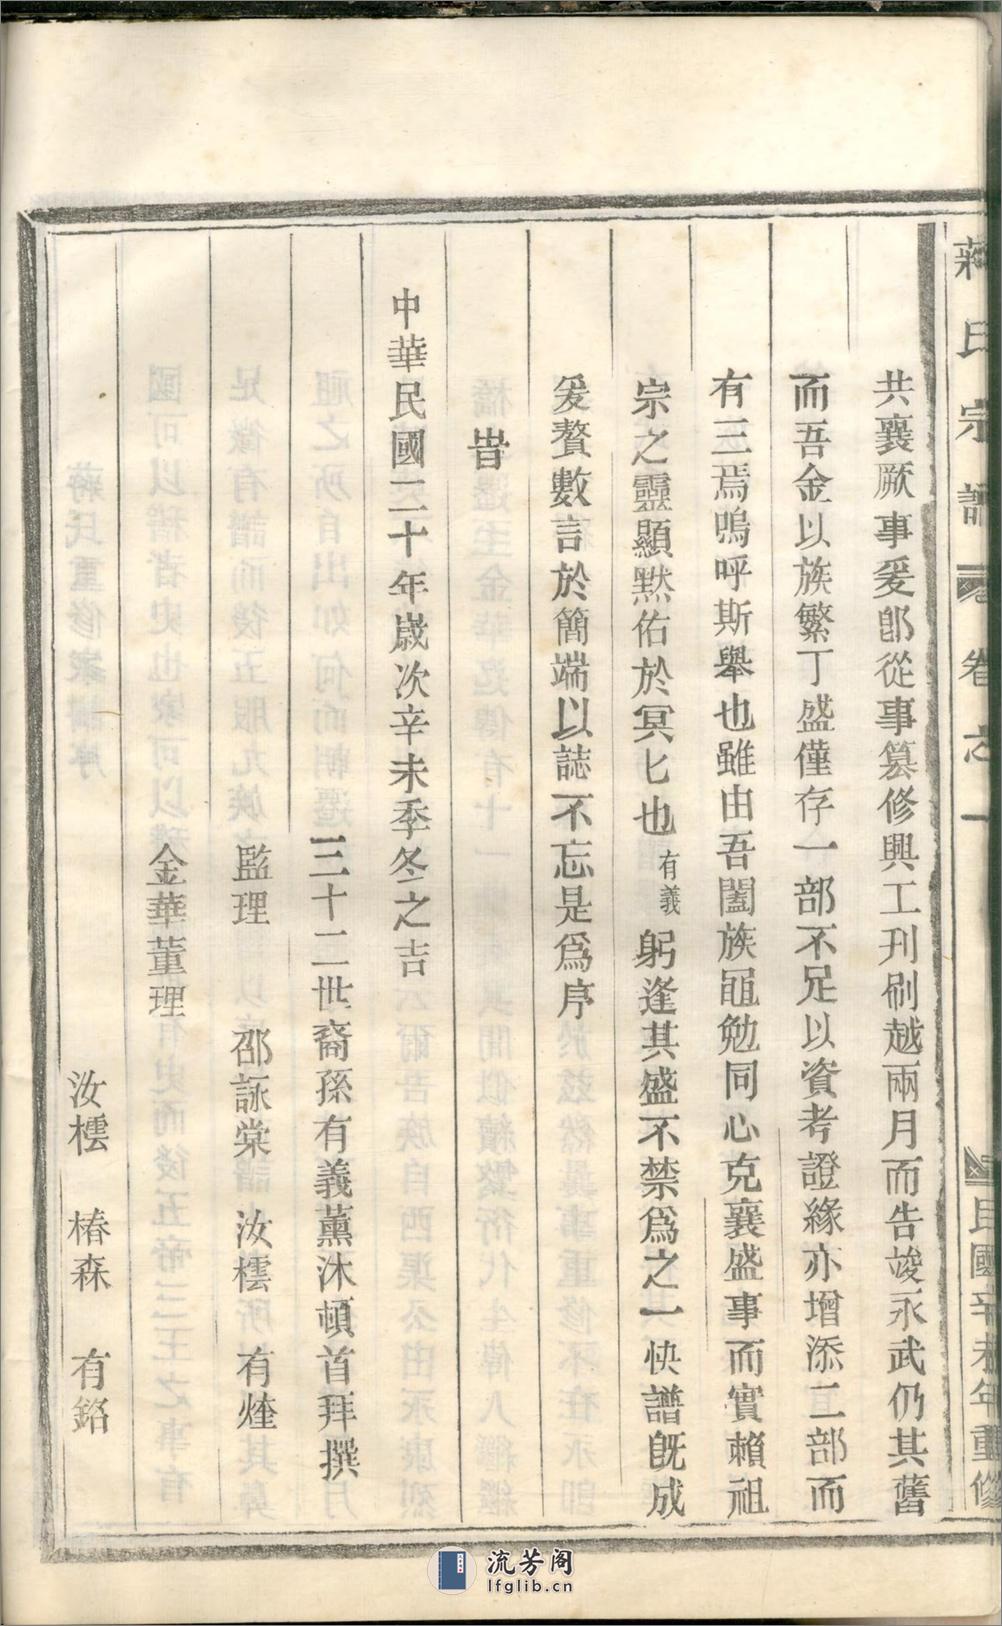 蔣氏宗譜 卷之一 民國辛未年重修
共襄厥事爰卽從事篡修興工刊刷越兩月而告竣永武仍其舊
而吾金以族繁丁盛僅存一部不足以資考證緣亦增添二部而
有三焉嗚呼斯舉也雖由吾闔族黽勉同心克襄盛事而實賴祖
宗之靈顯默佑於冥匕也有義躬逢其盛不禁爲之一快譜旣成
爰贅數言於簡端以誌不忘是爲序
旹
中華民國二十年歲次辛未季冬之吉
三十二世裔孫有義薰沐頓首拜撰
監理 邵詠棠 汝橒 有烽
金華董理
汝橒 椿森 有銘
流芳阁
lfglib.cn